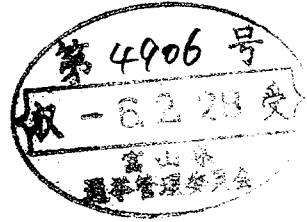 第4906号
収 -6.2.28 受
富山県
選挙管理委員会